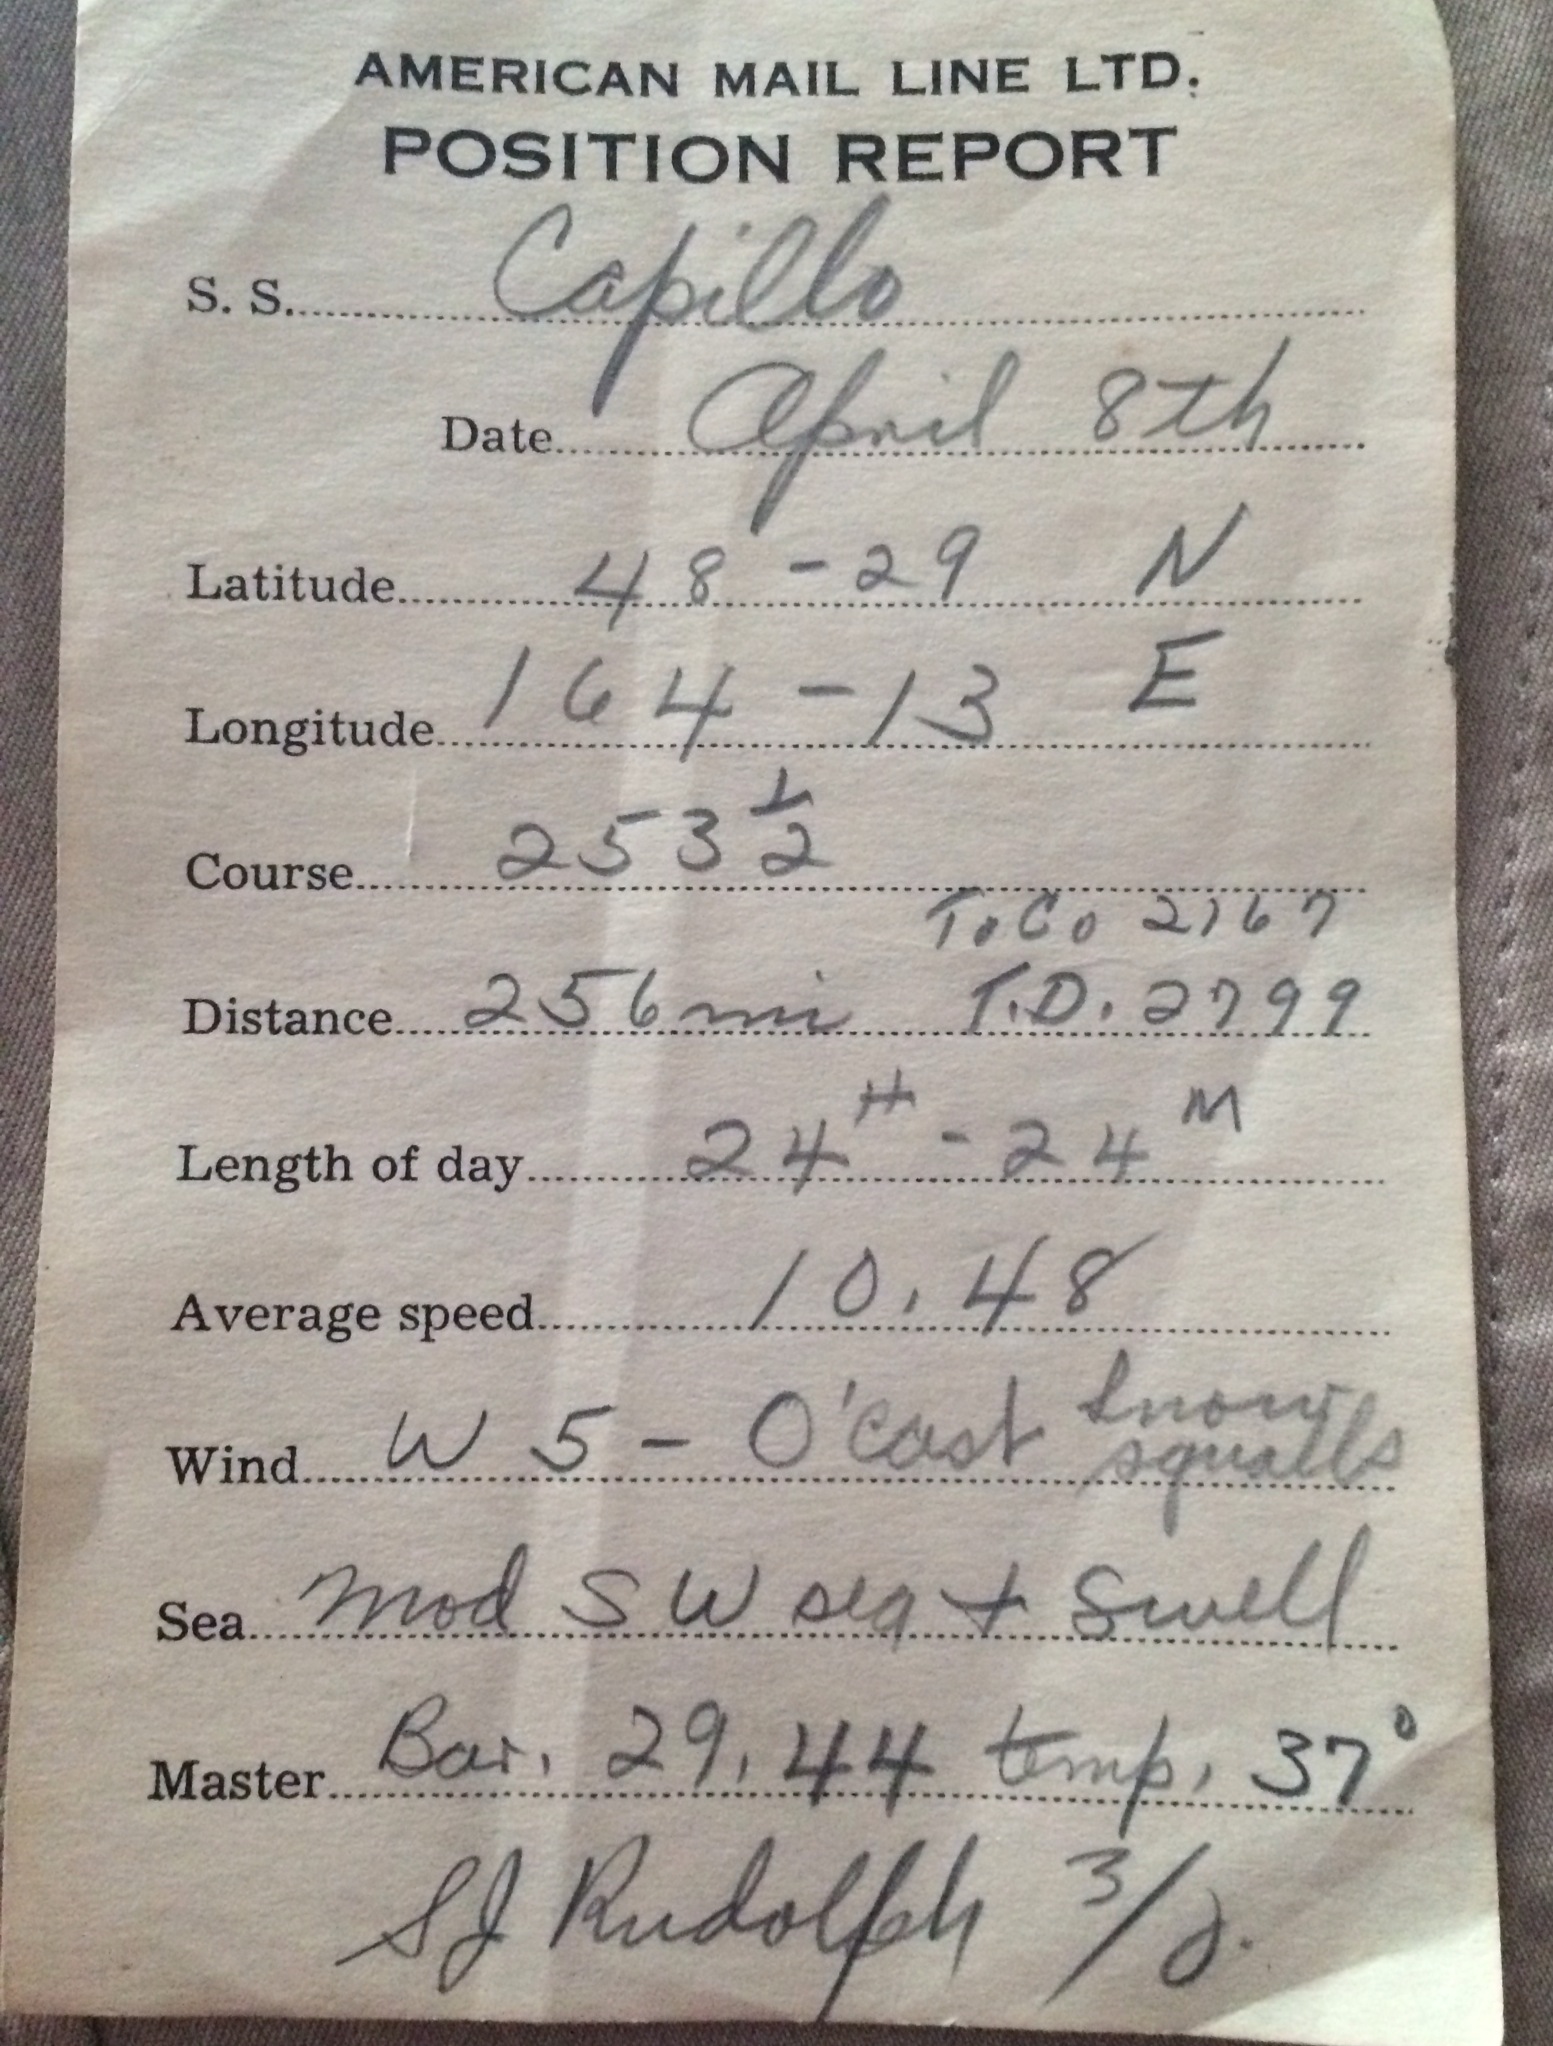 AMERICAN MAIL LINE LTD.
POSITION REPORT
S. S. Capillo
Date April 8th
Latitude 48-29 N
Longitude 164-13 E
Course 253 1/2
T.Co 2167
Distance 256 mi T.D. 2799
Length of day 24H - 24M
Average speed 10.48
Wind W 5 - O'cast snow squalls
Sea Mod SW sea + Swell
Master Bar. 29.44 temp. 37°
SJ Rudolph 3/